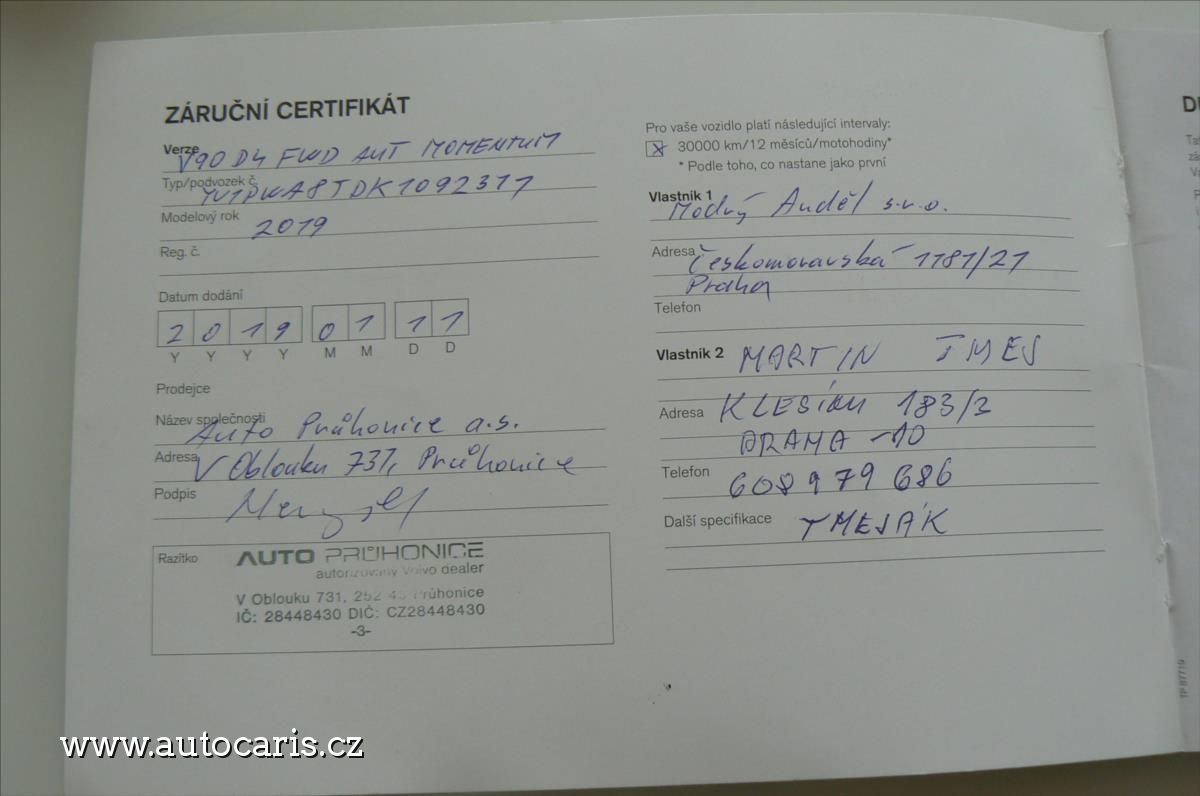 ZÁRUČNÍ CERTIFIKÁT
Verze V90 D4 FWD AUT MOMENTUM
Typ/podvozek č. YV1PWA8TDK1092317
Modelový rok 2019
Reg. č.
Datum dodání
2 0 1 9 0 1 1 1
Y Y Y Y M M D D
Prodejce
Název společnosti Auto Průhonice a.s.
Adresa V Oblouku 731, Průhonice
Podpis
Razítko
AUTO PRŮHONICE
autorizovaný Volvo dealer
V Oblouku 731, 252 43 Průhonice
IČ: 28448430 DIČ: CZ28448430
-3-
Pro vaše vozidlo platí následující intervaly:
x 30000 km/12 měsíců/motohodiny*
* Podle toho, co nastane jako první
Vlastník 1 Modrý Anděl s.r.o.
Adresa Českomoravská 1181/21
Praha
Telefon
Vlastník 2 MARTIN TMEJ
Adresa 183/3
PRAHA -10
Telefon 608 979 686
Další specifikace TMEJÁK
TP 87719
www.autocaris.cz